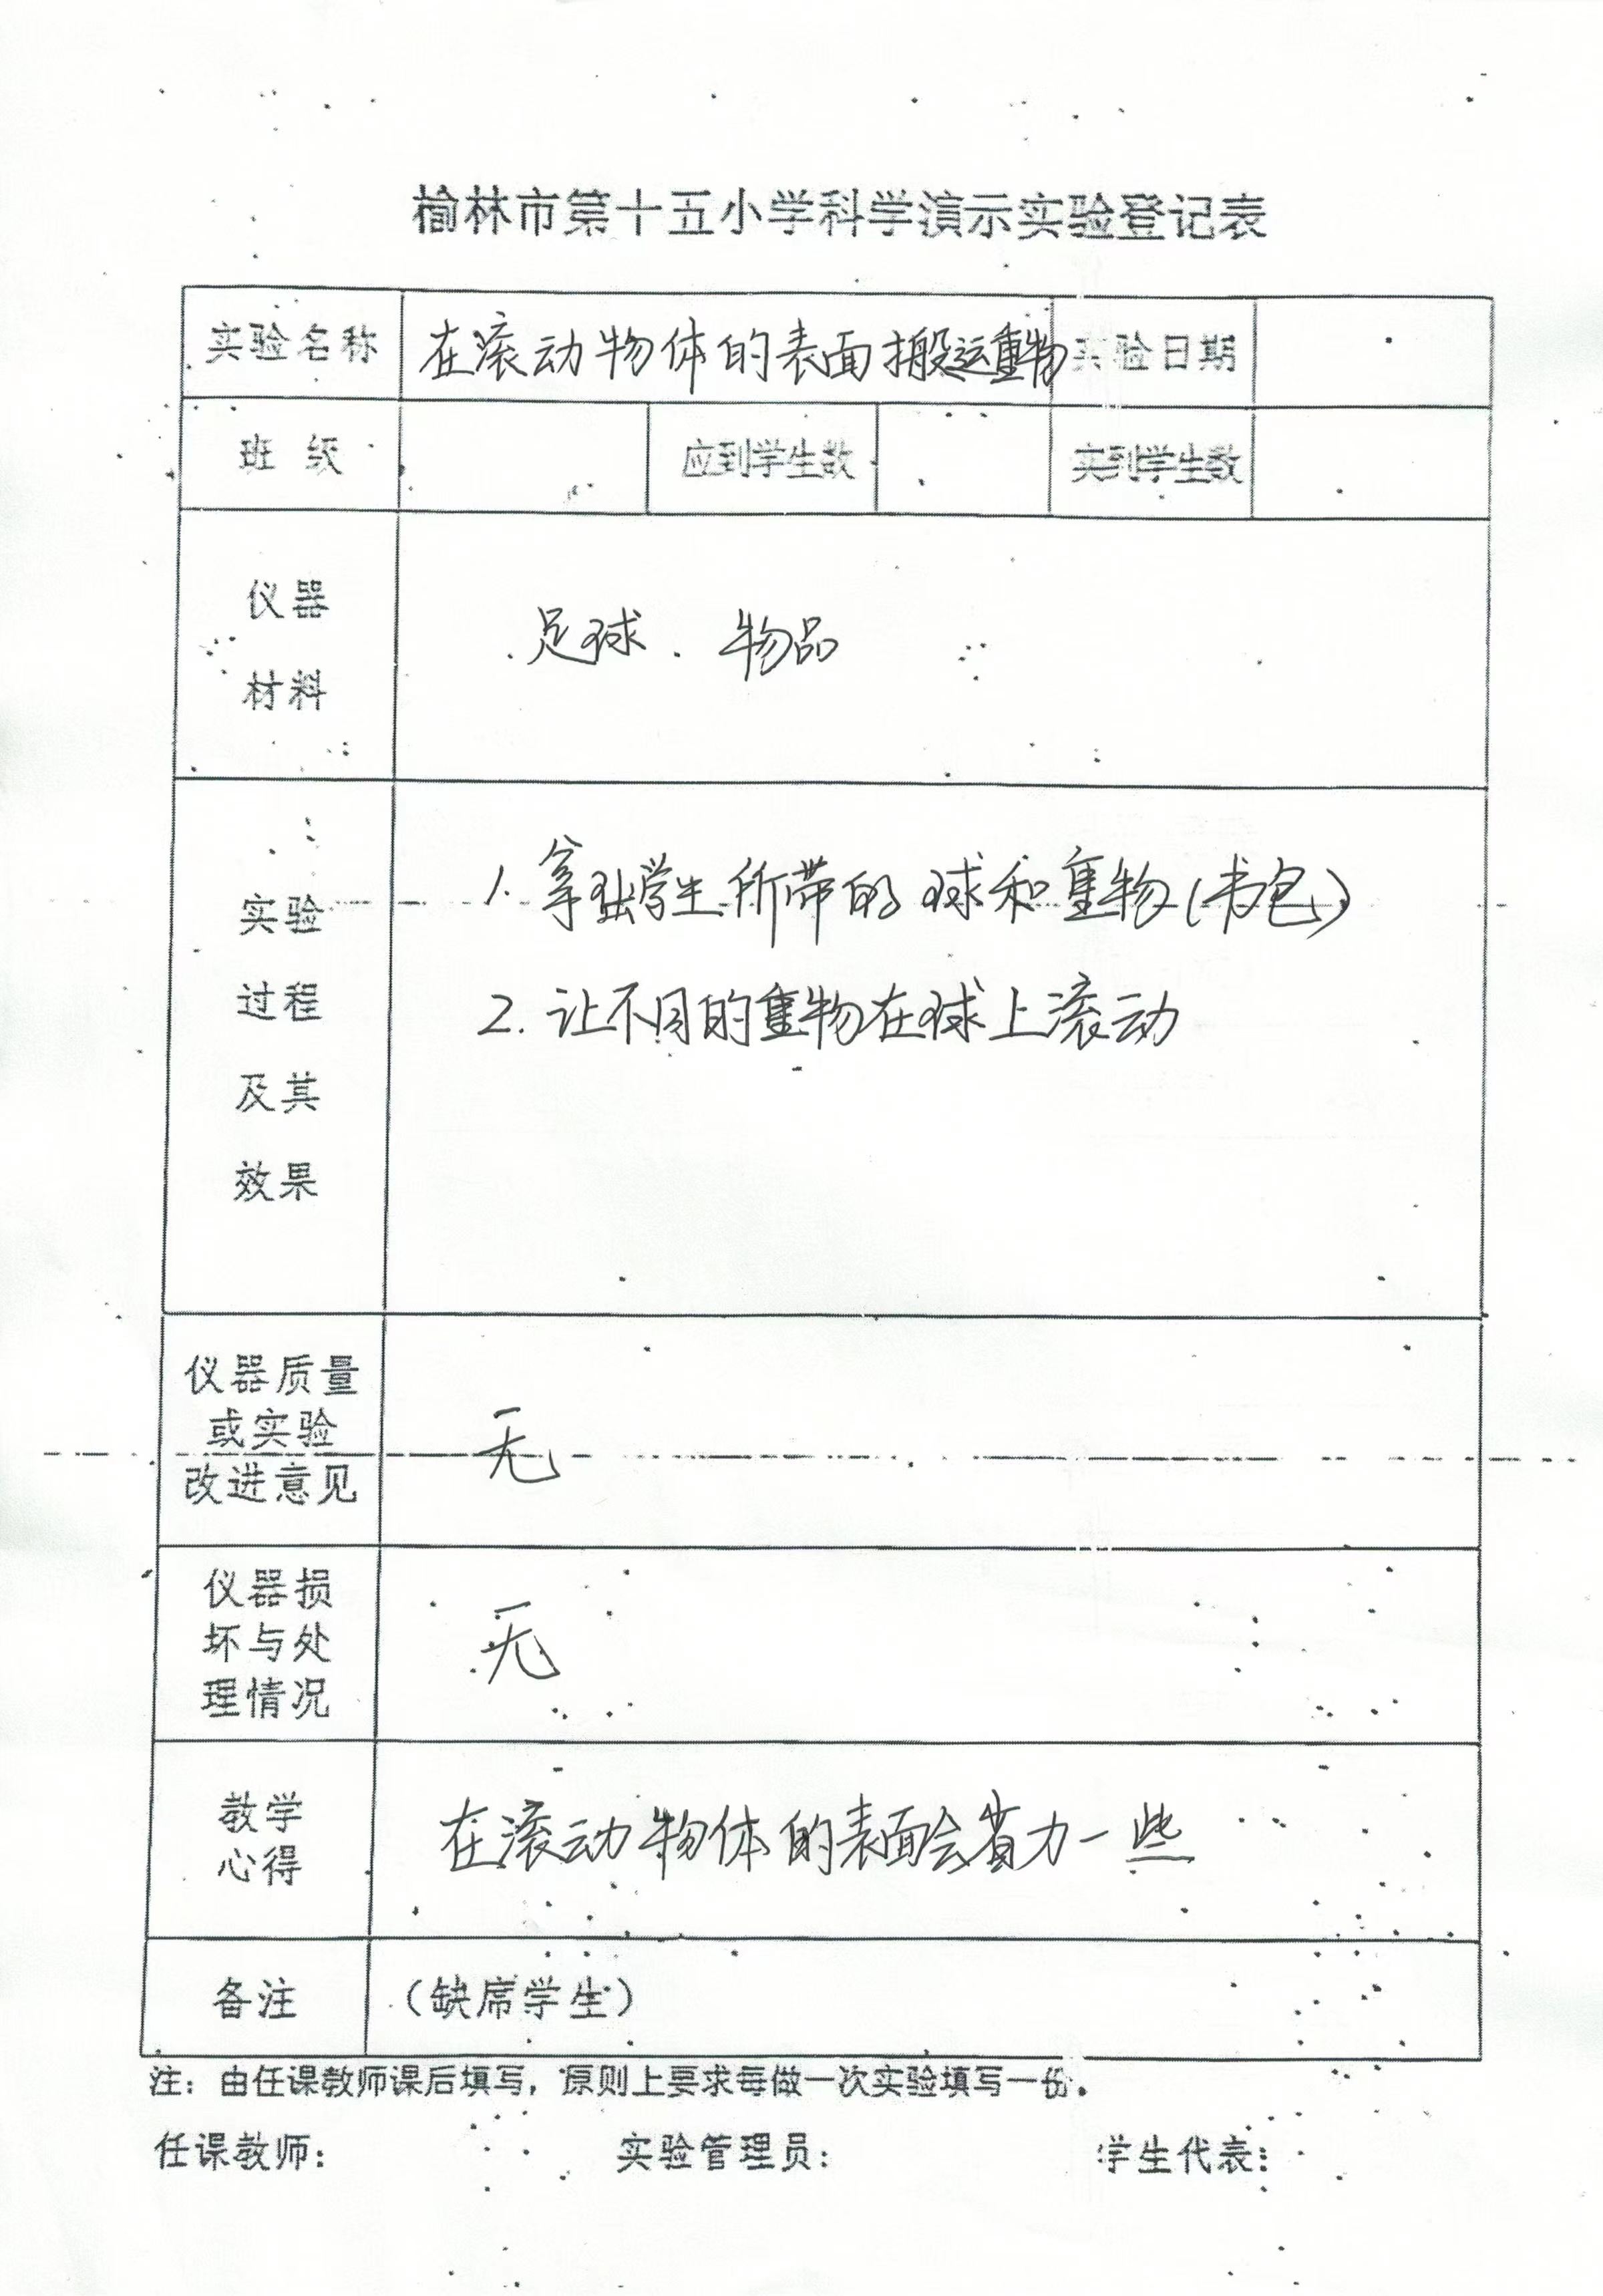 榆林市第十五小学科学演示实验登记表
实验名称 在滚动物体的表面搬运重物 实验日期
班 级 应到学生数 实到学生数
仪器
材料
足球. 物品
实验
过程
及其
效果
1. 拿出学生所带的球和重物(书包)
2. 让不同的重物在球上滚动
仪器质量
或实验
改进意见
无
仪器损
坏与处
理情况
无
教学
心得
在滚动物体的表面会省力一些
备注 (缺席学生)
注: 由任课教师课后填写, 原则上要求每做一次实验填写一份。
任课教师: 实验管理员: 学生代表: